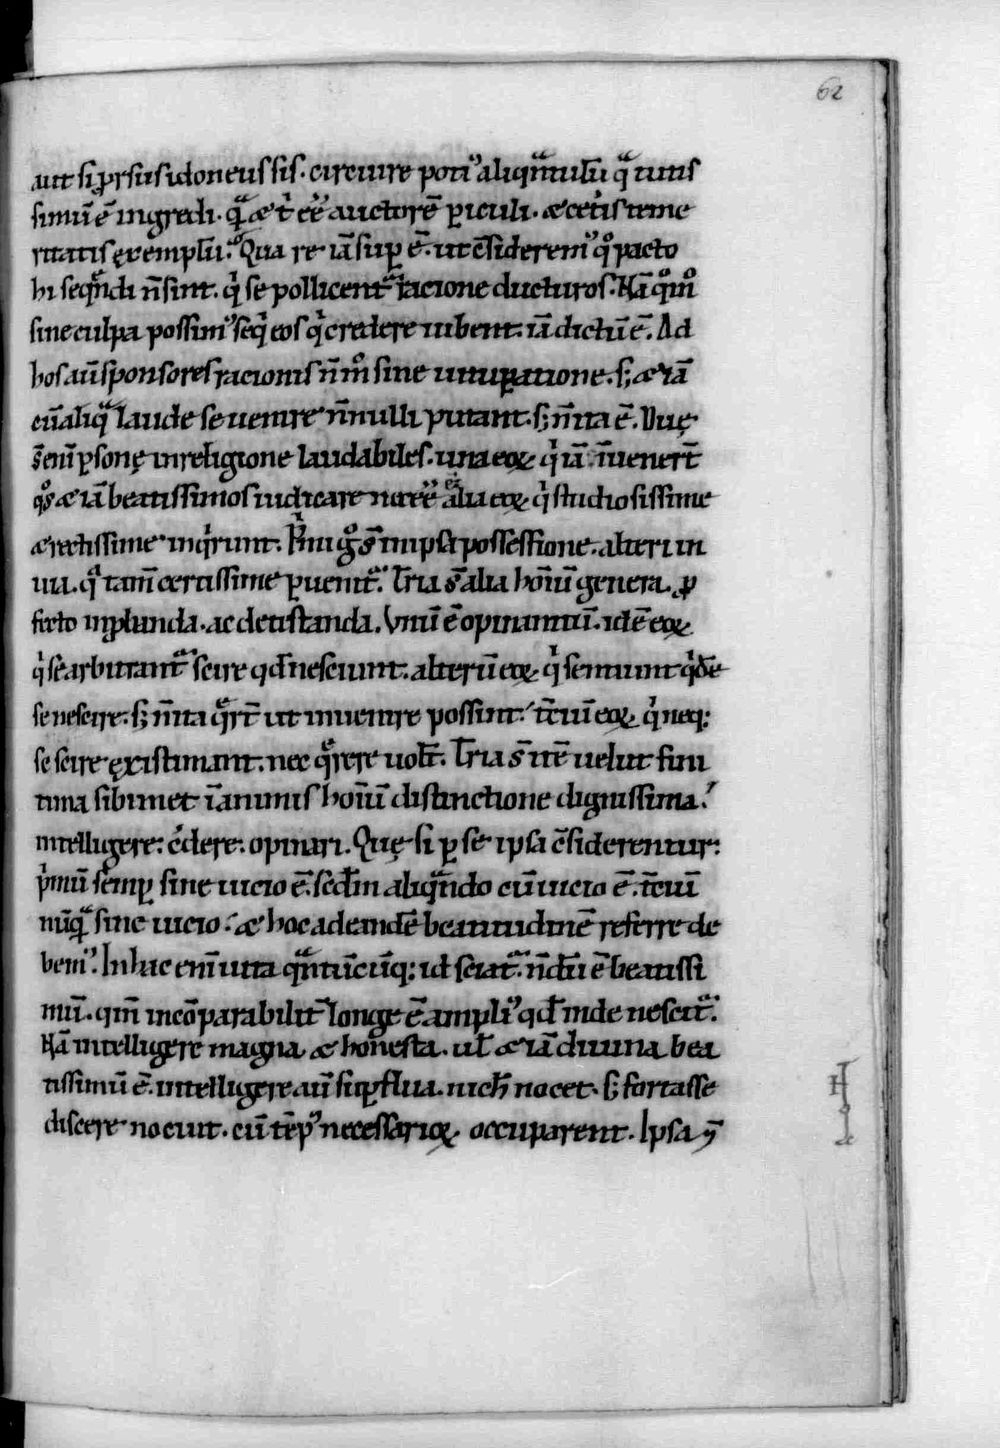 62
aut si ꝓrsus idoneus sis. circuire poti᾽ aliqͣntulū qͣ tutis
simū ē ingredi. qͣ̄ & t̍ eē auctorē ꝑiculi. & cet̍is teme
ritatis exemplū. Qua re iā suꝑ ē. ut c̄siderem᾽ qͦ pacto
hi seqͣndi n̄ sint. qͥ se pollicentͣ racione ducturos. Nā qͦm̊
sine culpa possim᾽ seqͥ eos qͥ credere iubent. iā dictū ē. Ad
hos aū sponsores racionis n̄ m̊ sine uituꝑatione. s; & iā
cū aliqͣ laude se uenire n̄nulli putant. s; n̄ ita ē. Duę
s̄ enī ꝑsonę in religione laudabiles. una eoꝝ qͥ iā inuenert̄
qͦs & iā beatissimos iudicare necēē alia eoꝝ qͥ studiosissime
& rectissime inqͥrunt. Pͥmi gͦ s̄ in ipsa possessione. alteri in
uia. qͣ tam̄ certissime ꝑuenitͣ. Tria s̄ alia hoīū genera. ꝓ
fecto inꝓbanda. ac detistanda. Vnū ē opinantiū. id ē eoꝝ
qͥ se arbitrantͣ scire qd̄ nesciunt. alterū eoꝝ qͥ sentiunt qͥdē
se nescire. s; n̄ ita qͣ̄rt̄ ut inuenire possint. t̄ciū eoꝝ qͥ neq;
se scire existimant. nec qͣ̄rere uolt̄. Tria s̄ itē uelut fini
tima sibimet ī animis hoīū distinctione dignissima.
intelligere: c̍dere: opinari. Quę si ꝑ se ipsa c̄siderentur:
pͥmū semꝑ sine uicio ē. sed̄m aliqͣndo cū uicio ē. t̄ciū
nūqͣ̄ sine uicio. & hoc ad eandē beatitudinē referre de
bem᾽. In hac enī uita qͣntūcūq; id sciatͣ. n̄dū ē beatissi
mū. qm̄ incōparabilit̄ longe ē ampli᾽ qd̄ inde nescitͣ.
Nā intelligere magna & honesta. ul̄ & iā diuina bea
tissimū ē. intelligere aū suꝑflua. nich̄ nocet. s; fortasse
discere nocuit. cū tēp᾽ necessarioꝝ occuparent. Ipsa ꝙ